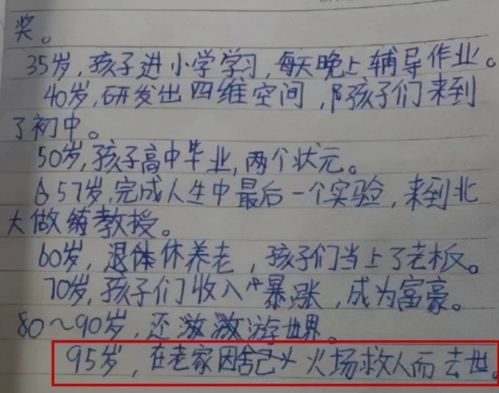 奖。
35岁,孩子进小学学习,每天晚上辅导作业。
40岁,研发出四维空间,陪孩子们来到
了初中。
50岁,孩子高中毕业,两个状元。
57岁,完成人生中最后一个实验,来到北
大做教授。
60岁,退休养老,孩子们当上了老板。
70岁,孩子们收入暴涨,成为富豪。
80~90岁,还激激游世界。
95岁,在老家因舍己火场救人而去世。